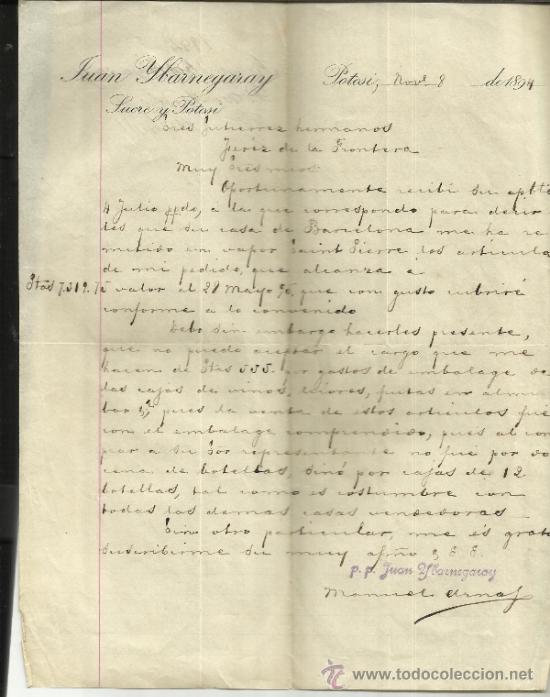 Juan Ybarnegaray
Potosi, Nove 8 de 1894
Sucre y Potosi
Sres Gutierrez hermanos
Jeréz de la Frontera
Muy Sres mios
Oportunamente recibi su
4 Julio ppdo, a la que correspondo para decir
les que su casa de Barcelona me ha re
mitido en vapor Saint Pierre los articulos
de mi pedido, que alcanza a
Ptas 7.519.75 valor al 28 Mayo 95, que con gusto cubriré
conforme a lo convenido
Debo sin embargo hacerles presente,
que no puedo aceptar el cargo que me
hacen de Ptas 555. por gastos de embalage de
las cajas de vinos, licores, frutas en almi
bar &, pues la venta de estos articulos fué
con el embalage comprendido, pues al com
prar a su Sor representante no fue por do
cena de botellas, sinó por cajas de 12
botellas, tal como es costumbre con
todas las demas casas vendedoras
Sin otro particular, me és grato
suscribirme su muy afmo S. S. S.
p. p. Juan Ybarnegaray
Manuel
todocoleccion
www.todocoleccion.net